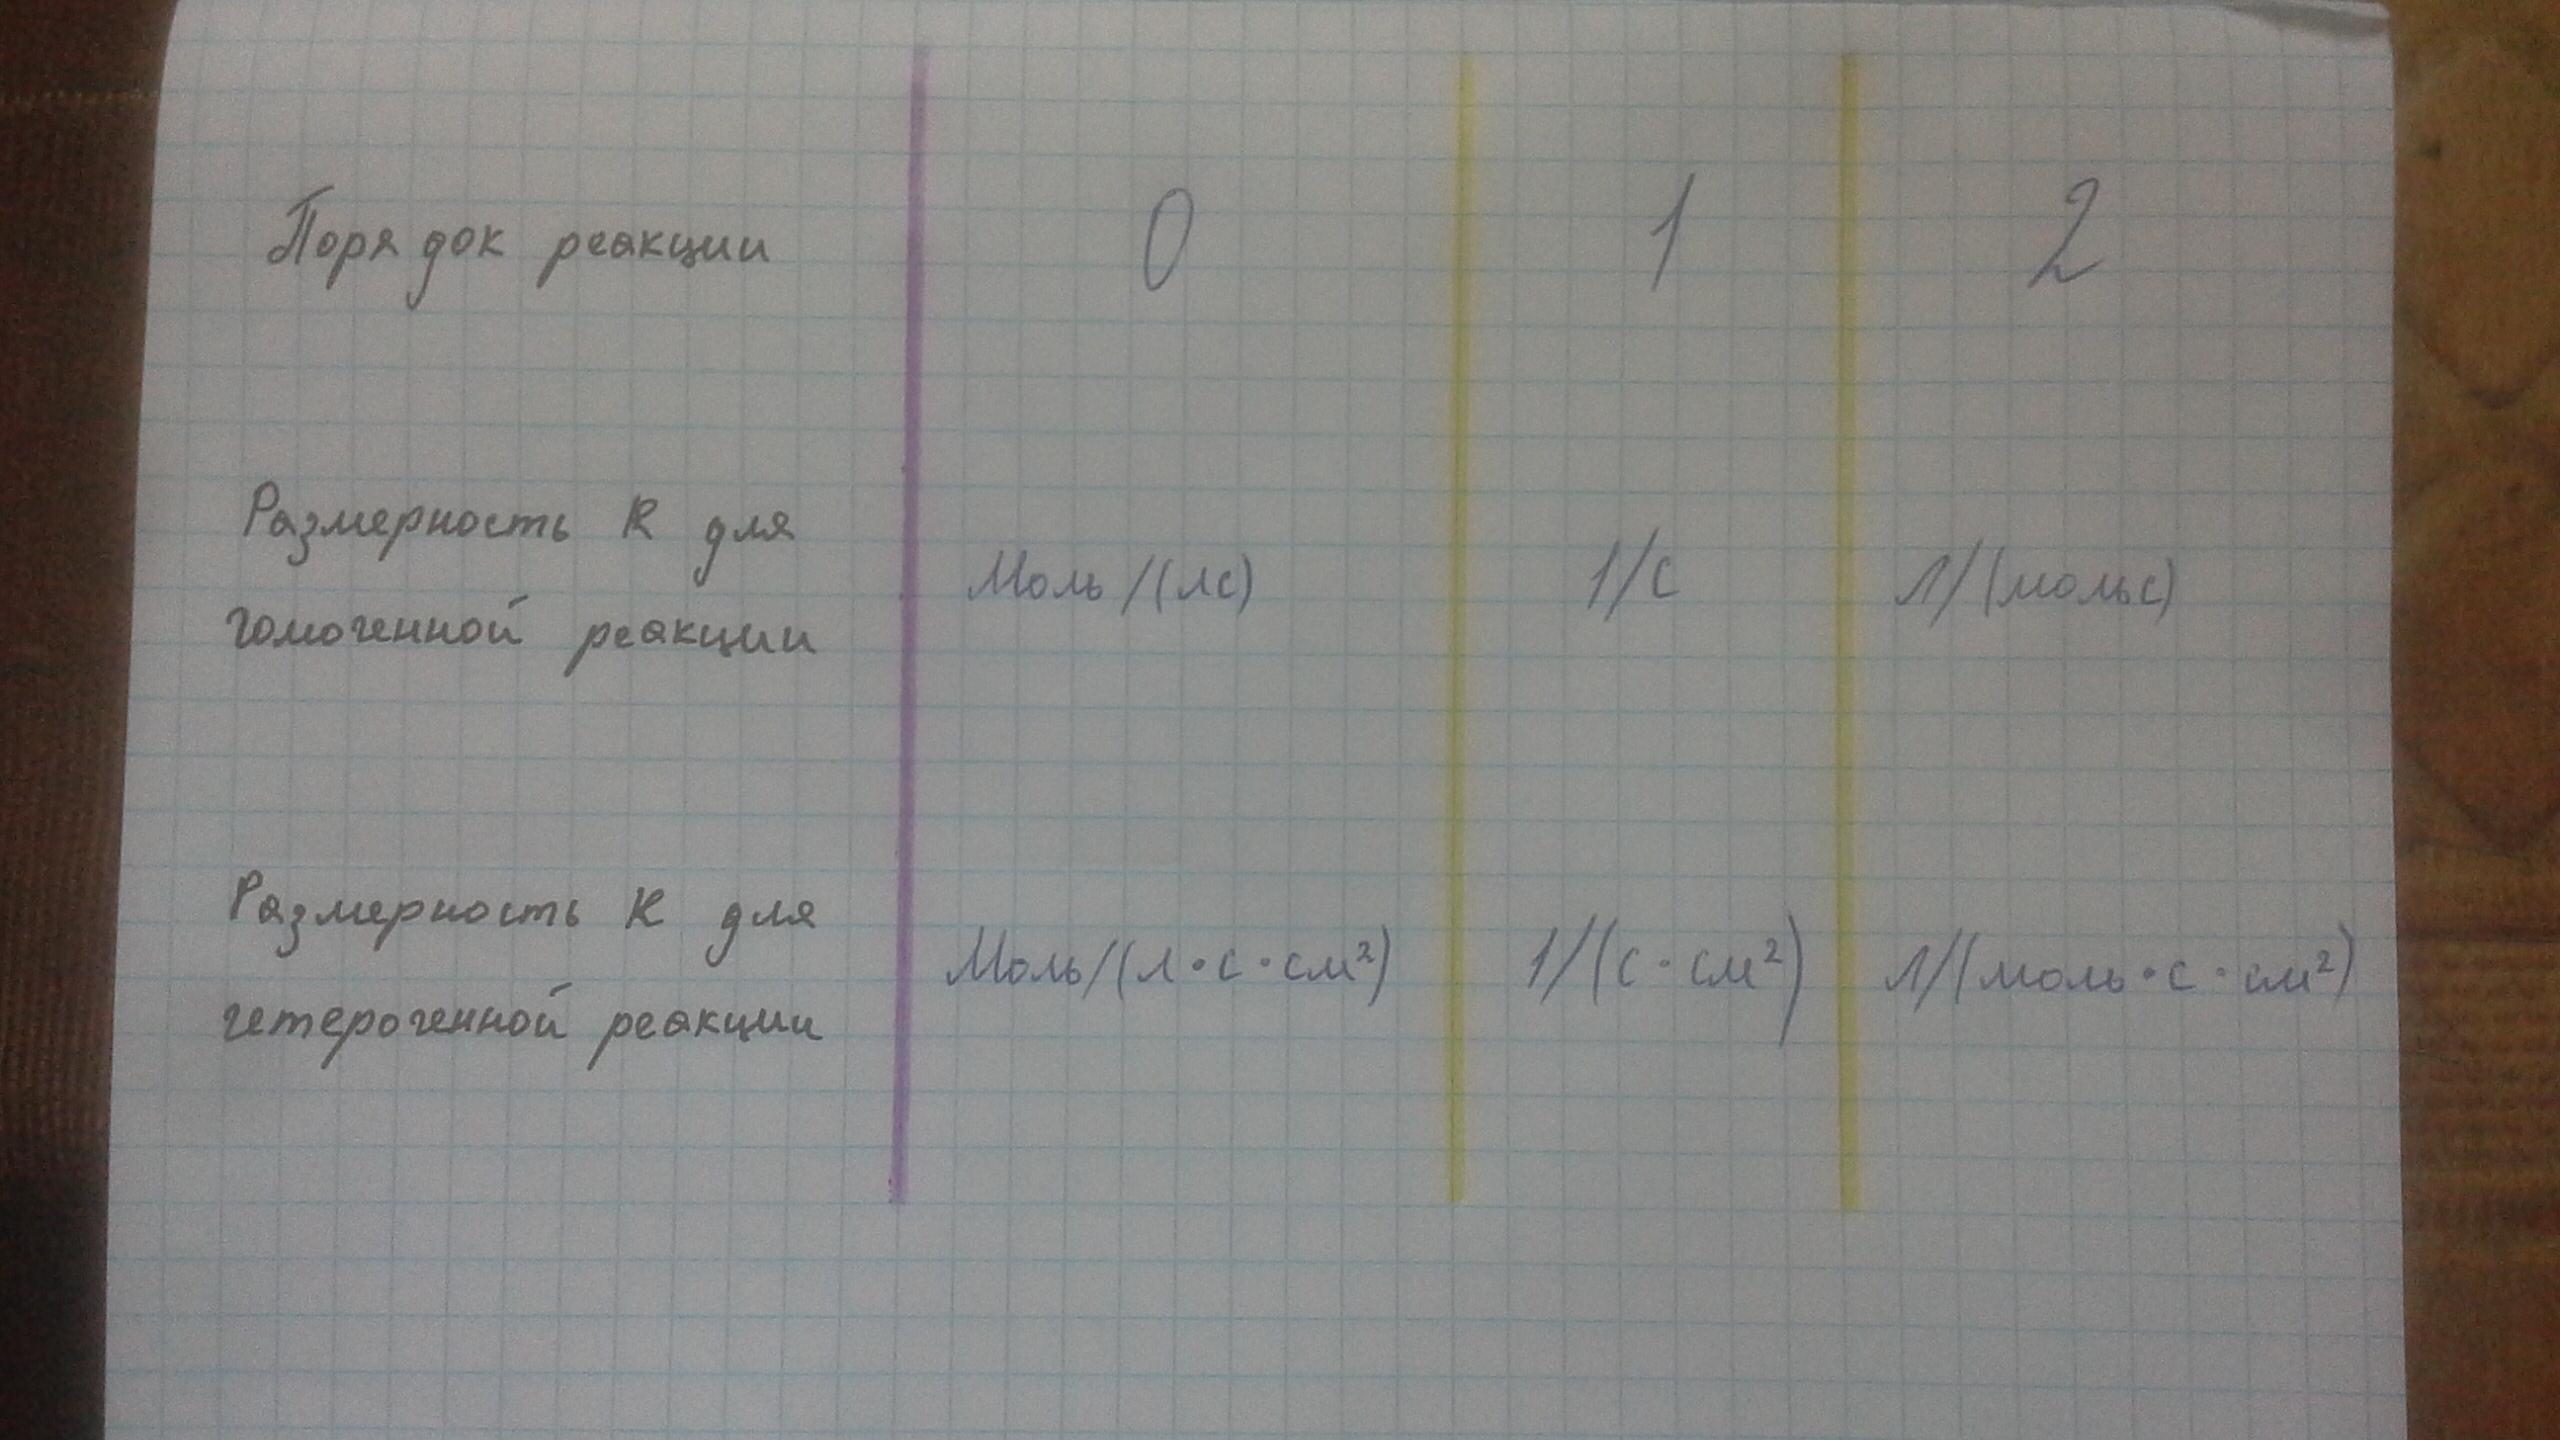 Порядок реакции 0 1 2
Размерность K для
гомогенной реакции
Моль/(лс) 1/с Л/(мольс)
Размерность K для
гетерогенной реакции
Моль/(л·с·см²) 1/(с·см²) Л/(моль·с·см²)